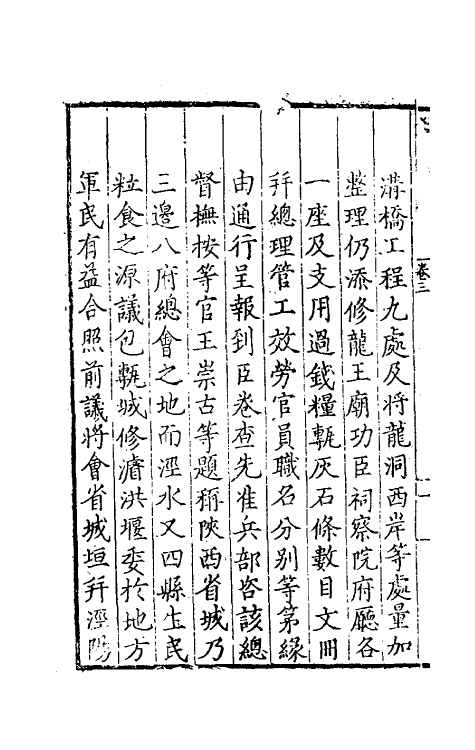 溝橋工程九處及將龍洞西岸等處量加
整理仍添修龍王廟功臣祠察院府廳各
一座及支用過錢糧甎灰石條數目文冊
幷總理管工效勞官員職名分別等第緣
由通行呈報到臣卷查先准兵部咨該總
督撫按等官王崇古等題稱陝西省城乃
三邊八府總會之地而涇水又四縣生民
粒食之源議包甎城修濬洪堰委於地方
軍民有益合照前議將會省城垣幷涇陽
卷三